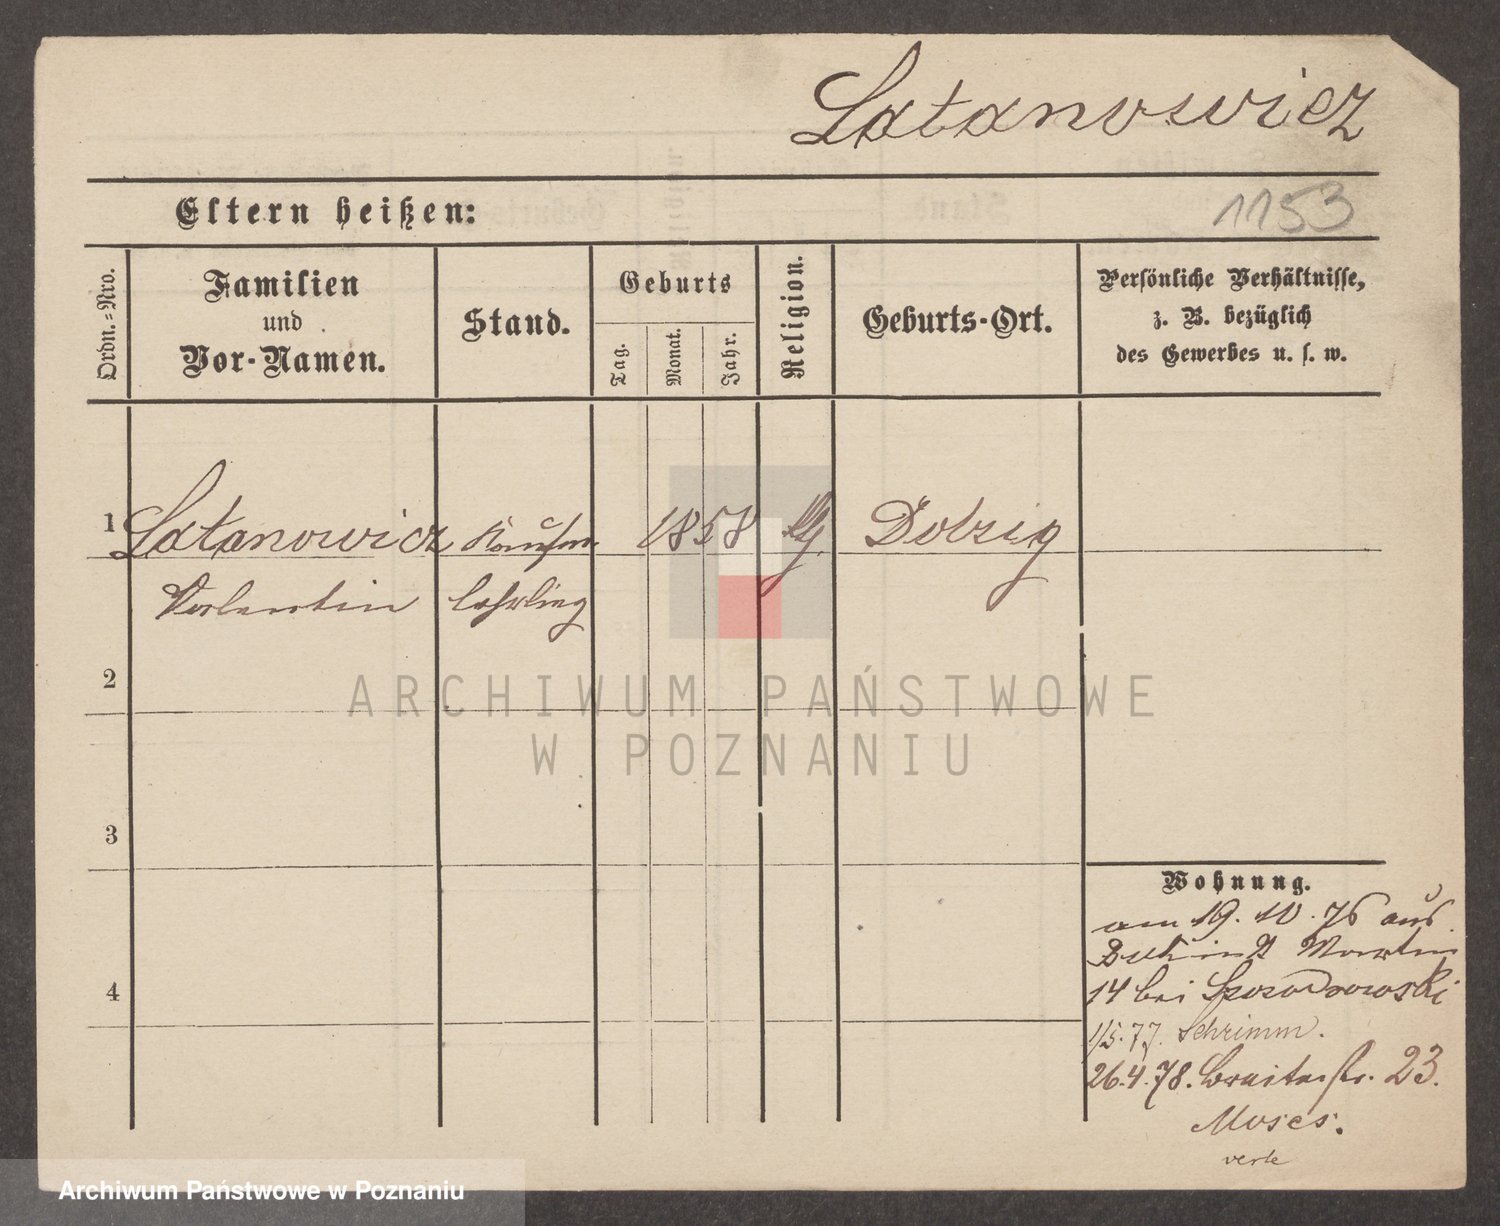 Latanowicz
Eltern heißen:
1153
Ordn.=Nro.
Familien
und
Vor-Namen.
Stand.
Geburts
Tag.
Monat.
Jahr.
Religion.
Geburts-Ort.
Persönliche Verhältnisse,
z. B. bezüglich
des Gewerbes u. s. w.
1
Latanowicz
Valentin
Kaufm.
Lehrling
1858
Dolzig
2
ARCHIWUM PAŃSTWOWE
W POZNANIU
3
4
Wohnung.
am 19. 10. 76 aus
Martin
14 bei
1/5. 77. Schrimm.
26.4.78. Breitestr. 23.
Moses.
Archiwum Państwowe w Poznaniu